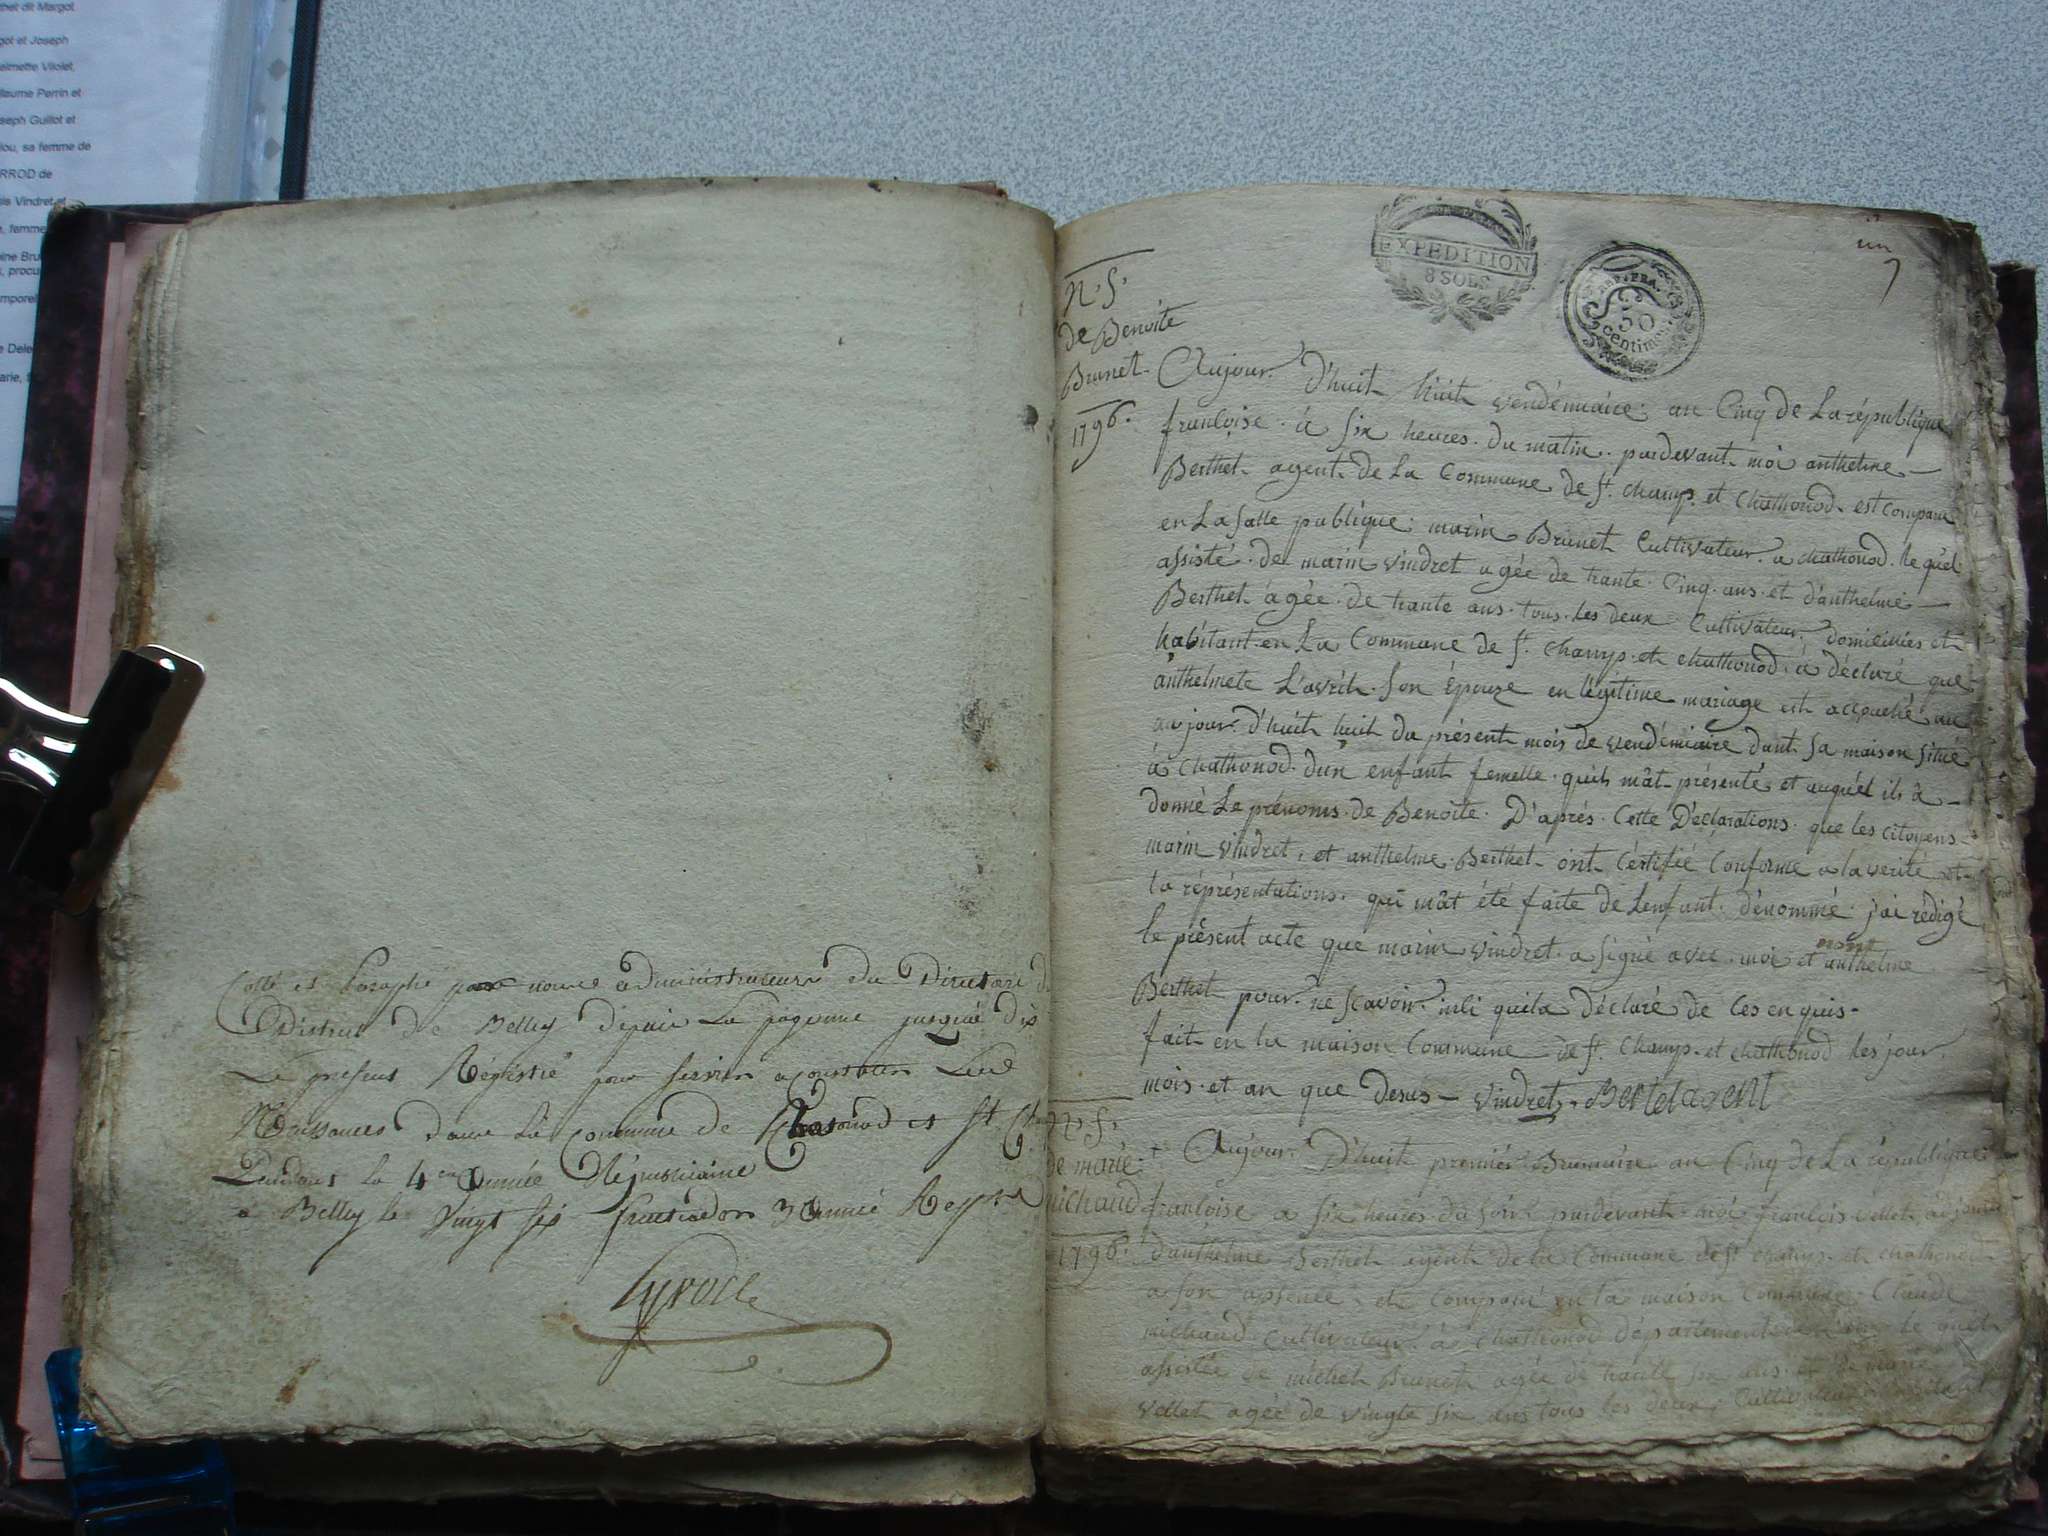 thet dit Margot.
got et Joseph
elmette Vilolet,
llaume Perrin et
seph Guillot et
lou, sa femme de
RROD de
is Vindret et
, femme
ine Bru
, procu
mporel
e Dele
arie, f
Cotté et Paraphé par nous administrateurs du Directoire d
District de Belley depuis La premiere jusqua dix
Le present Régistre pour servir a constater Les
Naissances dans La Commune de Chatonod et St Ch
Pendant La 4e année Républicaine
a Belley le Vingt six fructidor 3 année Repne
EXPEDITION
8 SOLS
50
Centimes
un
N. S.
de Benoite
Brunet
1796.
Aujour. D'huit huit vendémiaire an Cinq de La république
francoise. à six heures. du matin. pardevant moi anthelme
Berthet agent de La Commune de St. champs et chathonod est comparu
en La salle publique: marin Brunet Cultivateur a chathonod. le quel
assisté. de marin vindret agée de trante Cinq. ans. et d'anthelme
Berthet âgée. de trante ans. tous. les deux Cultivateur. domiciliés et
habitant en La Commune de St. champs et chathonod. à déclaré que
anthelmete L'avrit. son Épouze en légitime mariage est accouché
aujour. D'huit huit du présent mois de vendémiaire dant sa maison située
à chathonod. dun enfant femelle. quil mât présenté et auquel il à
donné Le prénoms. de Benoite. D'aprés. Cette Déclarations. que les citoyens
marin vindret, et anthelme Berthet ont certifié Conforme a la verité et
la réprésentations. qui mât été faite de Lenfant. dénommé. j'ai rédigé
le présent acte que marin vindret. a signé avec moi et non pas anthelme
Berthet pour ne scavoir. quila déclaré de ces enquis.
fait en la maison Commune de St. champs et chathonod les jour
mois. et an que desus — vindret. Bertetagent
N. S.
de marie
michaud
1796.
Aujour. D'huit premier Brumaire an Cinq de La république
francoise a six heures du soir pardevant moi francois vellet adjoint
d'anthelme Berthet agent de la Commune de St champs et chathonod
a son absence et comparu en la maison Commune Claude
michaud Cultivateur à chathonod département le quel
assistée de michel Brunet agée de trante six ans et de marie
vellet agée de vingte six ans tous les deux Cultivateur